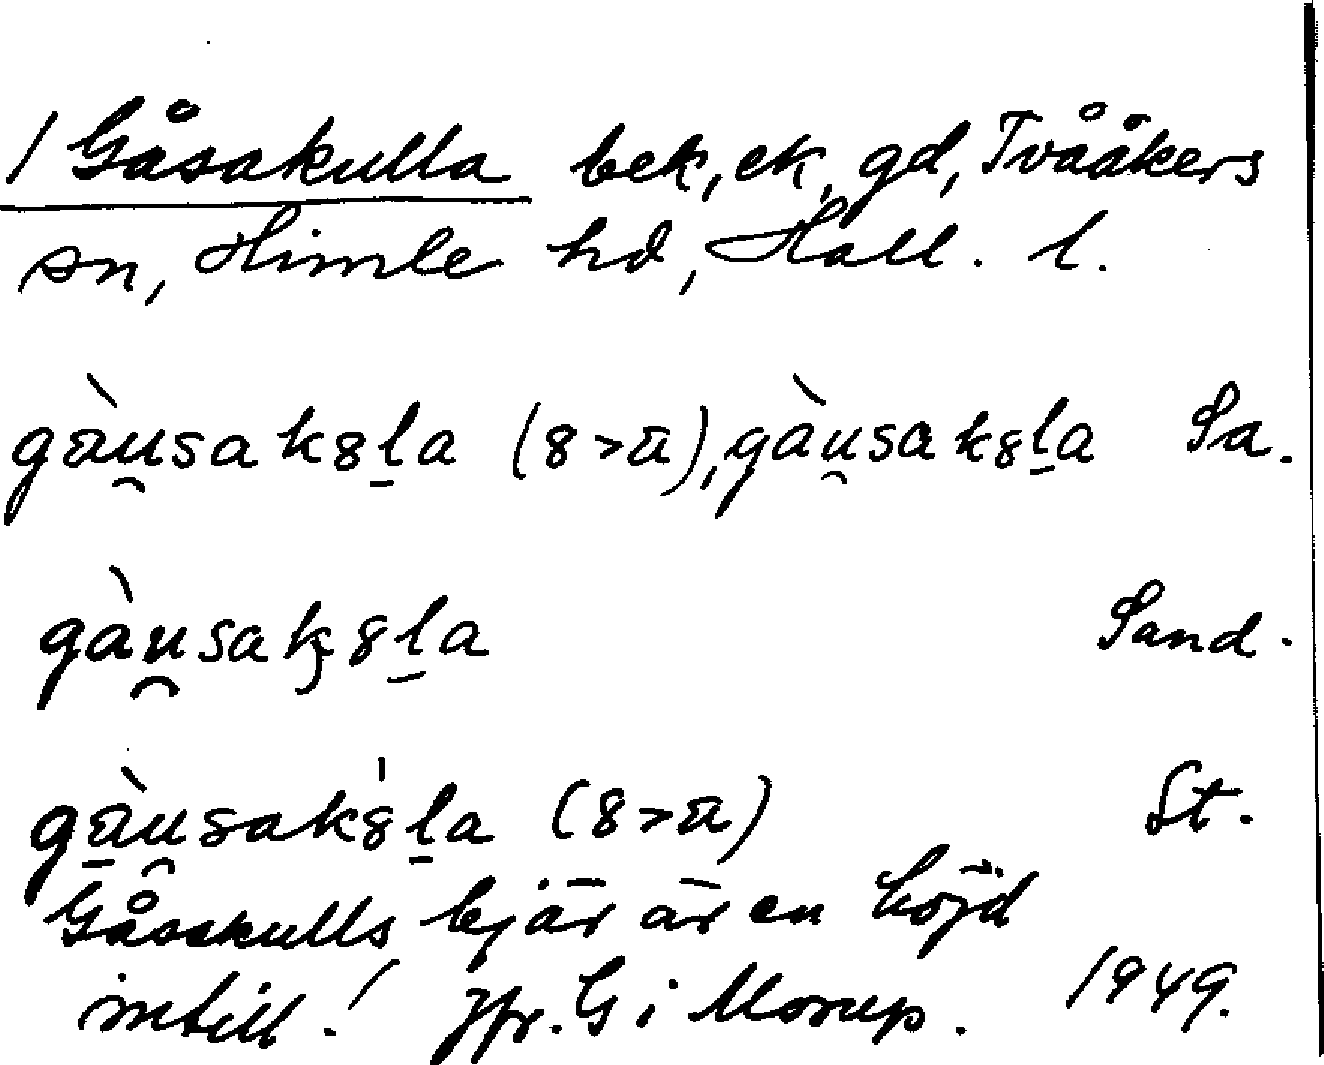 / Gåsakulla bek, ek, gd, Tvååkers
sn, Himle hd, Hall. l.
gàu̯sak8l̠a (8>a), gàu̯sak8l̠a Sa.
gàu̯sak8l̠a Sand.
gàu̯sak8l̠a (8>a) St.
Gåsakulls bjär är en höjd
intill! Jfr. G i Morup. 1949.